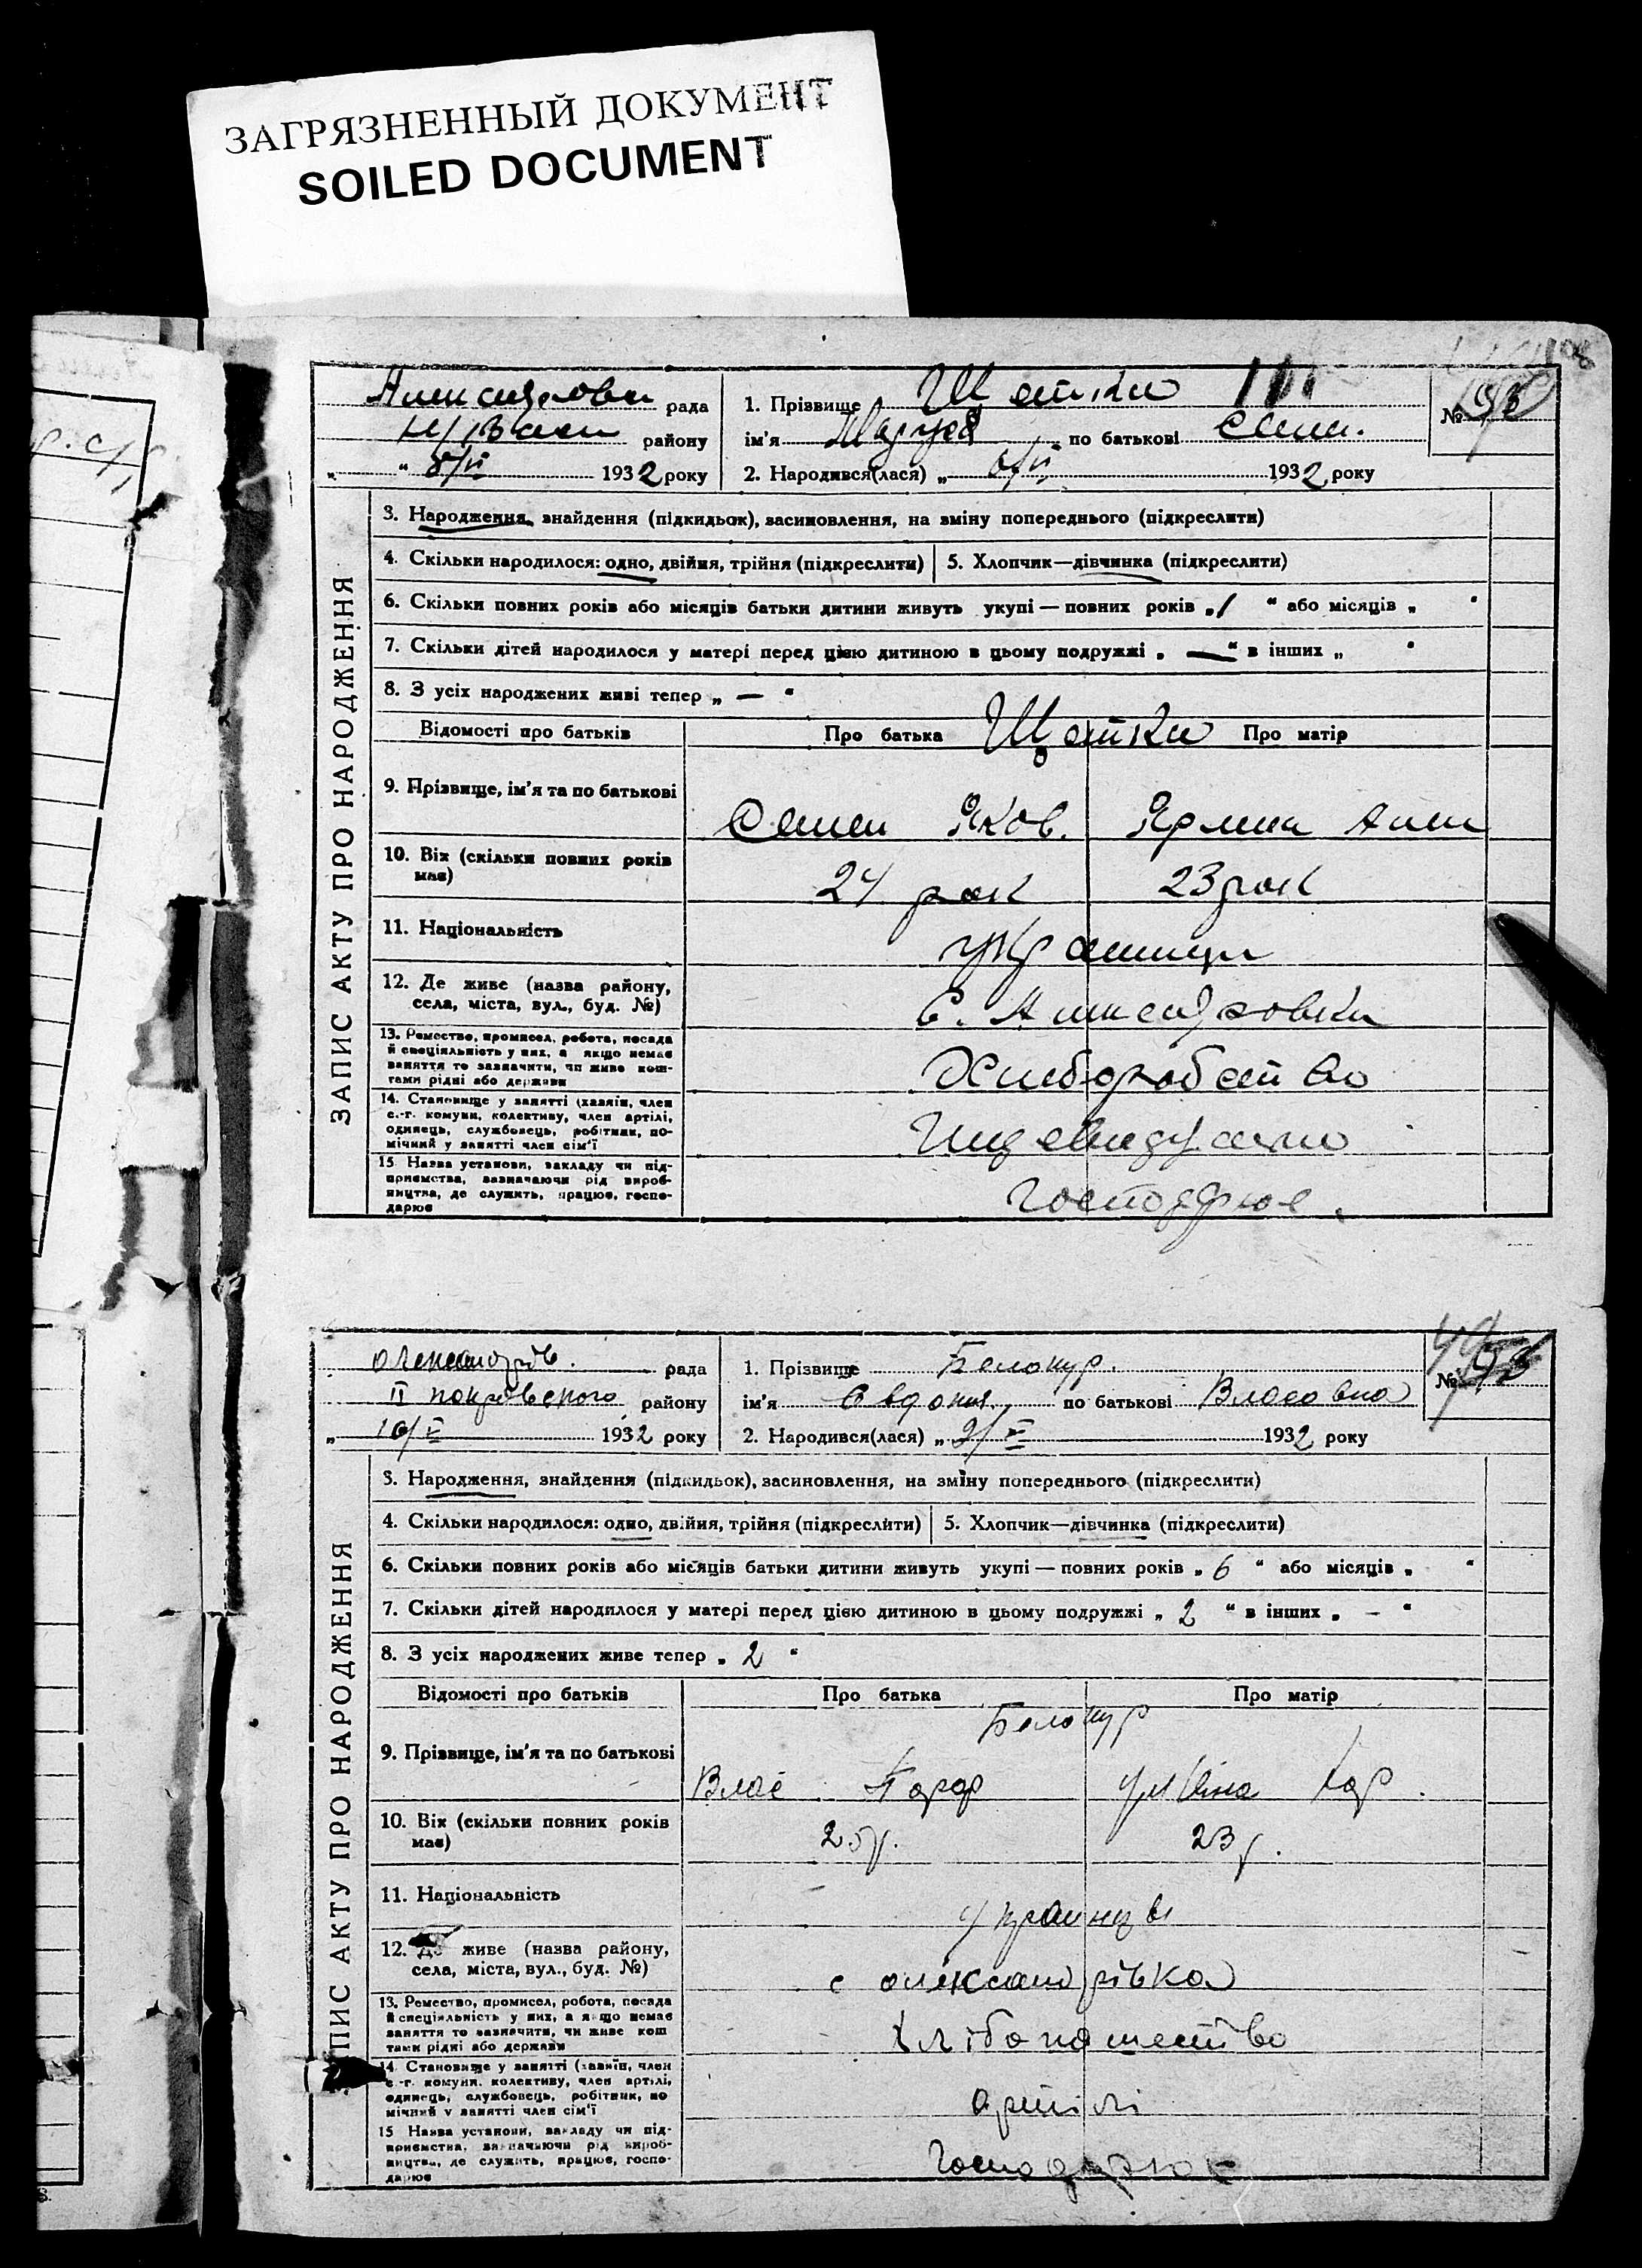 ЗАГРЯЗНЕННЫЙ ДОКУМЕНТ
SOILED DOCUMENT
рада
району
" 8/II 1932 року
1. Прізвище
ім'я по батькові Семен.
2. Народився(лася) „ 1932 року
№
ЗАПИС АКТУ ПРО НАРОДЖЕННЯ
3. Народження, знайдення (підкидьок), засиновлення, на зміну попереднього (підкреслити)
4. Скільки народилося: одно, двійня, трійня (підкреслити) 5. Хлопчик—дівчинка (підкреслити)
6. Скільки повних років або місяців батьки дитини живуть укупі — повних років „ 1 “ або місяців „ “
7. Скільки дітей народилося у матері перед цією дитиною в цьому подружжі „ — “ в інших „ “
8. З усіх народжених живі тепер „ — “
Відомості про батьків Про батька Про матір
9. Прізвище, ім'я та по батькові
Семен Яков.
10. Вік (скільки повних років має)
24 рок 23 рок
11. Національність
українци
12. Де живе (назва району, села, міста, вул., буд. №)
с.
13. Ремество, промисел, робота, посада й спеціяльність у них, а якщо немає заняття то зазначити, чи живе коштами рідні або держави
Хлеборобство
14. Становище у занятті (хазяїн, член с.-г. комуни, колективу, член артілі, одинець, службовець, робітник, помічний у занятті член сім'ї
15 Назва установи, закладу чи підприємства, зазначаючи рід виробництва, де служить, працює, господарює
Господарює.
Олександрів. рада
II покровського району
„ 10/V 1932 року
1. Прізвище Белокур.
ім'я Євдокия по батькові Власовна
2. Народився(лася) „ 9/V 1932 року
№
ЗАПИС АКТУ ПРО НАРОДЖЕННЯ
3. Народження, знайдення (підкидьок), засиновлення, на зміну попереднього (підкреслити)
4. Скільки народилося: одно, двійня, трійня (підкреслити) 5. Хлопчик—дівчинка (підкреслити)
6. Скільки повних років або місяців батьки дитини живуть укупі — повних років „ 6 “ або місяців „ “
7. Скільки дітей народилося у матері перед цією дитиною в цьому подружжі „ 2 “ в інших „ — “
8. З усіх народжених живе тепер „ 2 “
Відомості про батьків Про батька Про матір
Белокур
9. Прізвище, ім'я та по батькові
Влас
10. Вік (скільки повних років має)
25р. 23р.
11. Національність
українців
12. Де живе (назва району, села, міста, вул., буд. №)
с олександрівка
13. Ремество, промисел, робота, посада й спеціяльність у них, а якщо немає заняття то зазначити, чи живе коштами рідні або держави
хлібопашество
14 Становище у занятті (хазяїн, член с.-г. комуни, колективу, член артілі, одинець, службовець, робітник, помічний у занятті член сім'ї
артілі
15 Назва установи, закладу чи підприємства, зазначаючи рід виробництва, де служить, працює, господарює
Господарює